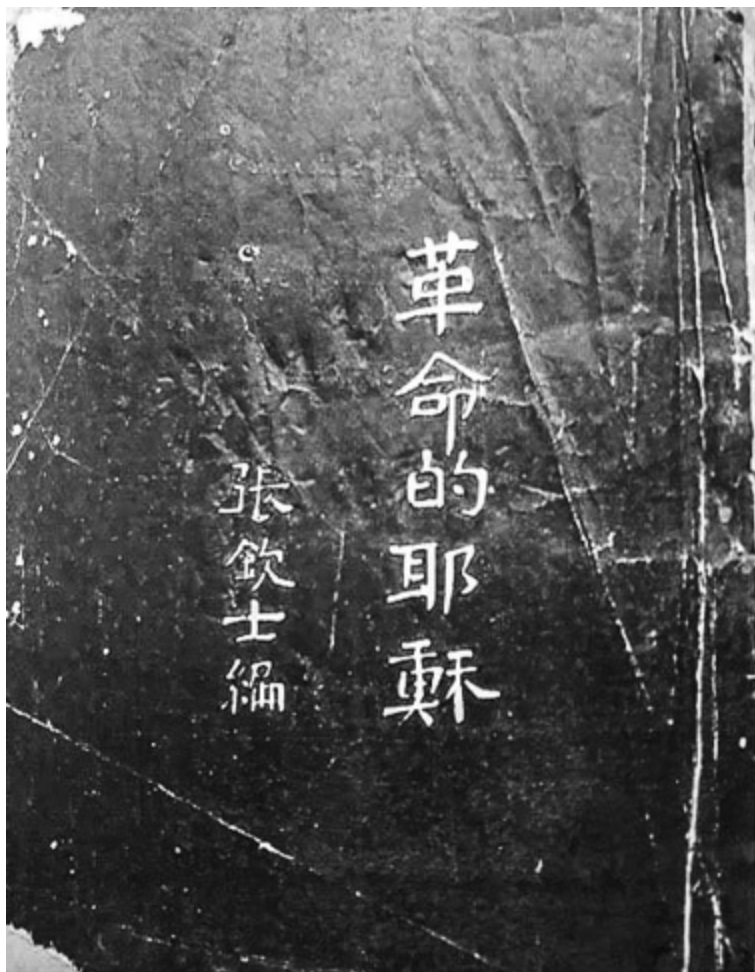 革命的耶穌
張欽士編